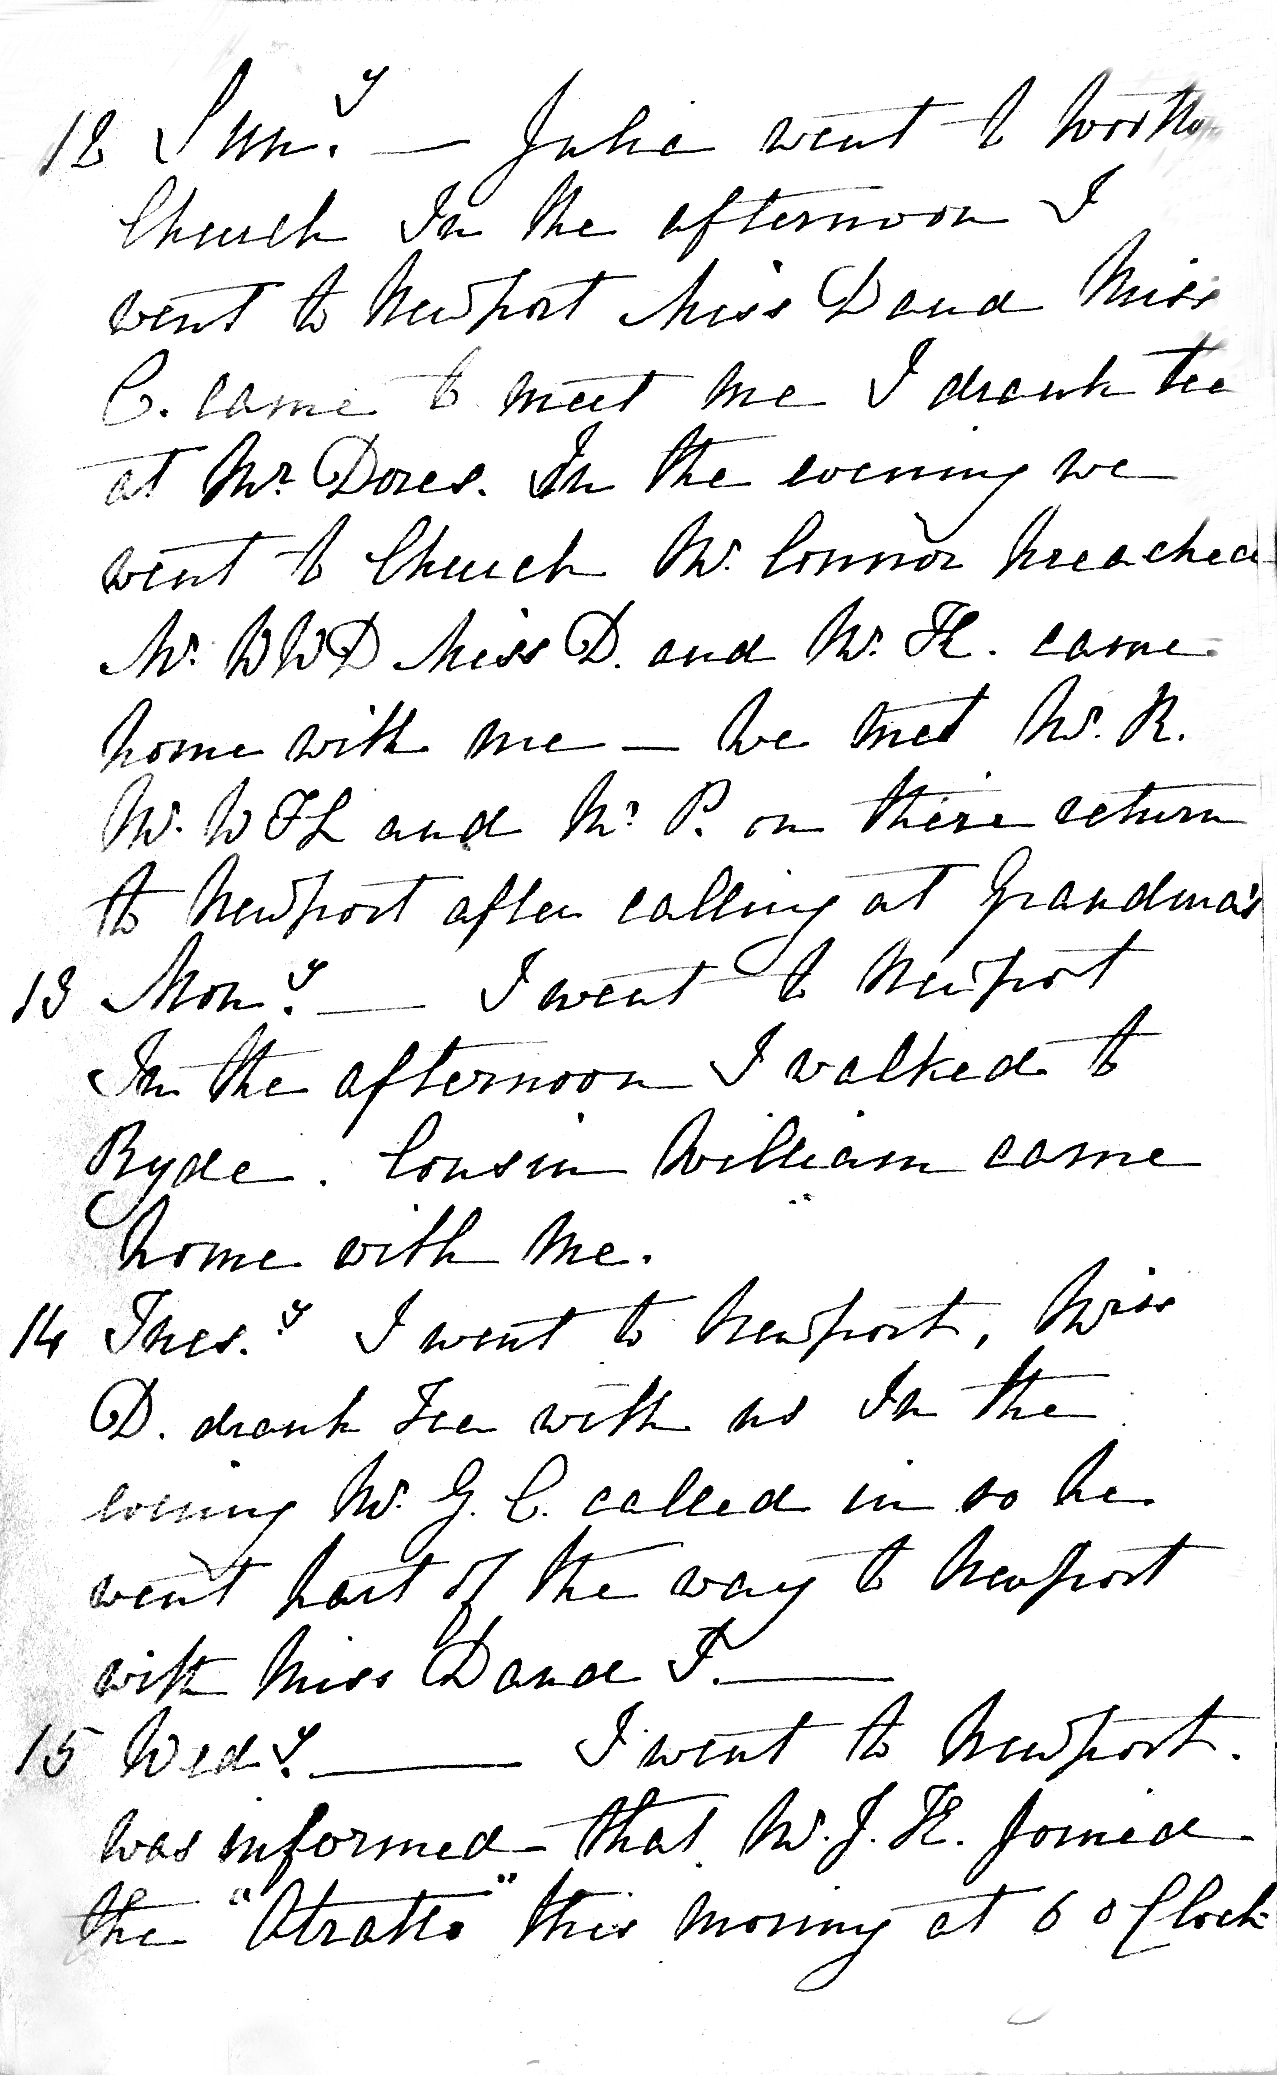 12 Sun.y — Julia went to Wootton
Church In the afternoon I
went to Newport Miss D and Miss
C. came to meet me I drank tea
at Mr Dores. In the evening we
went to Church Mr. Connor preached
Mr. W W D Miss D. and Mr. H. came
home with me — We met Mr. R.
Mr. W H L and Mr P. on there return
to Newport after calling at Grandma's
13 Mon.y — I went to Newport
In the afternoon I walked to
Ryde. Cousin William came
home with me.
14 Tues.y I went to Newport, Miss
D. drank Tea with us In the
evening Mr. G. C. called in so he
went part of the way to Newport
with Miss D and I. —
15 Wed.y — I went to Newport.
was informed that Mr. J. H. Joined
the "Atratto" this morning at 6 o Clock